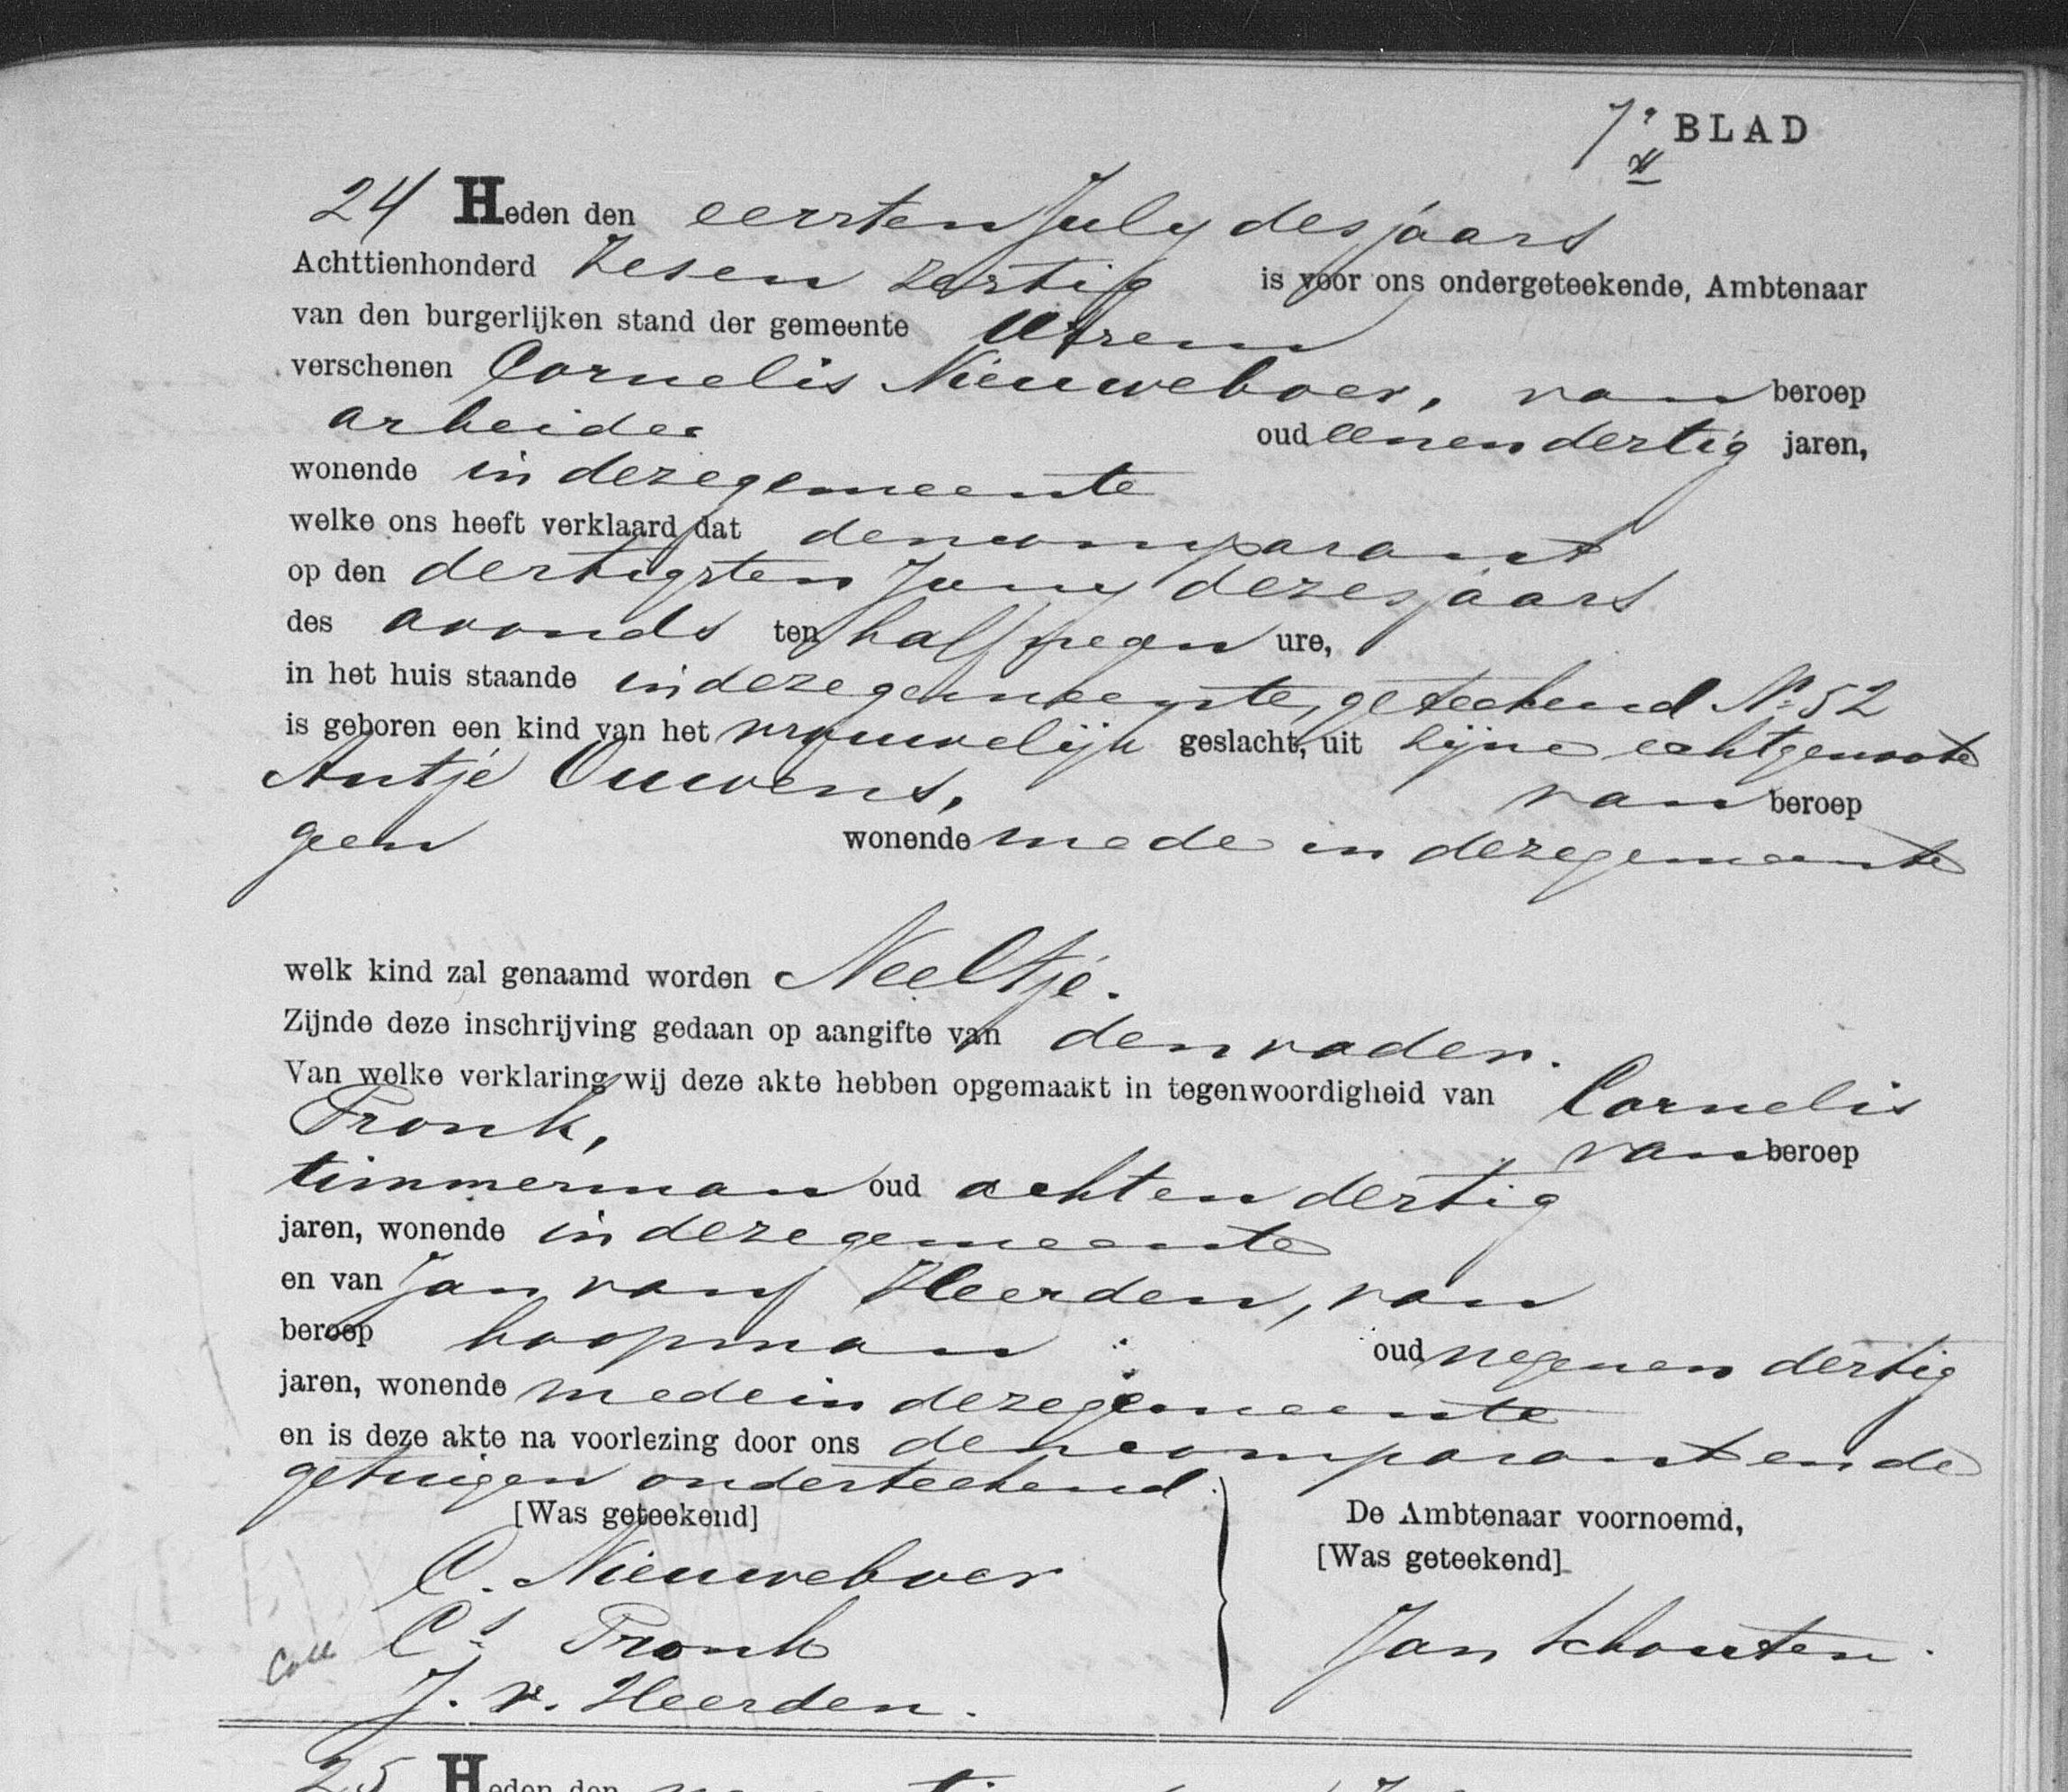 7e BLAD
24 Heden den eersten July des jaars
Achttienhonderd zesen zestig is voor ons ondergeteekende, Ambtenaar
van den burgerlijken stand der gemeente Ursem
verschenen Cornelis Nieuweboer, van beroep
arbeider oud eenen dertig jaren,
wonende in dezegemeente
welke ons heeft verklaard dat den comparant
op den dertigsten Juny dezes jaars
des avonds ten half negen ure,
in het huis staande in dezegemeente, geteekend No 52
is geboren een kind van het vrouwelijk geslacht, uit zijne echtgenoote
Antje Ouwens, van beroep
geen wonende mede in dezegemeente
welk kind zal genaamd worden Neeltje.
Zijnde deze inschrijving gedaan op aangifte van den vader.
Van welke verklaring wij deze akte hebben opgemaakt in tegenwoordigheid van Cornelis
Pronk, van beroep
timmerman oud achten dertig
jaren, wonende in dezegemeente
en van Jan van Heerden, van
beroep koopman oud negenen dertig
jaren, wonende mede in dezegemeente
en is deze akte na voorlezing door ons den comparant en de
getuigen onderteekend.
[Was geteekend] De Ambtenaar voornoemd,
[Was geteekend]
C. Nieuweboer
Cs Pronk Jan Schouten.
Coll
J. v. Heerden.
25 Heden den